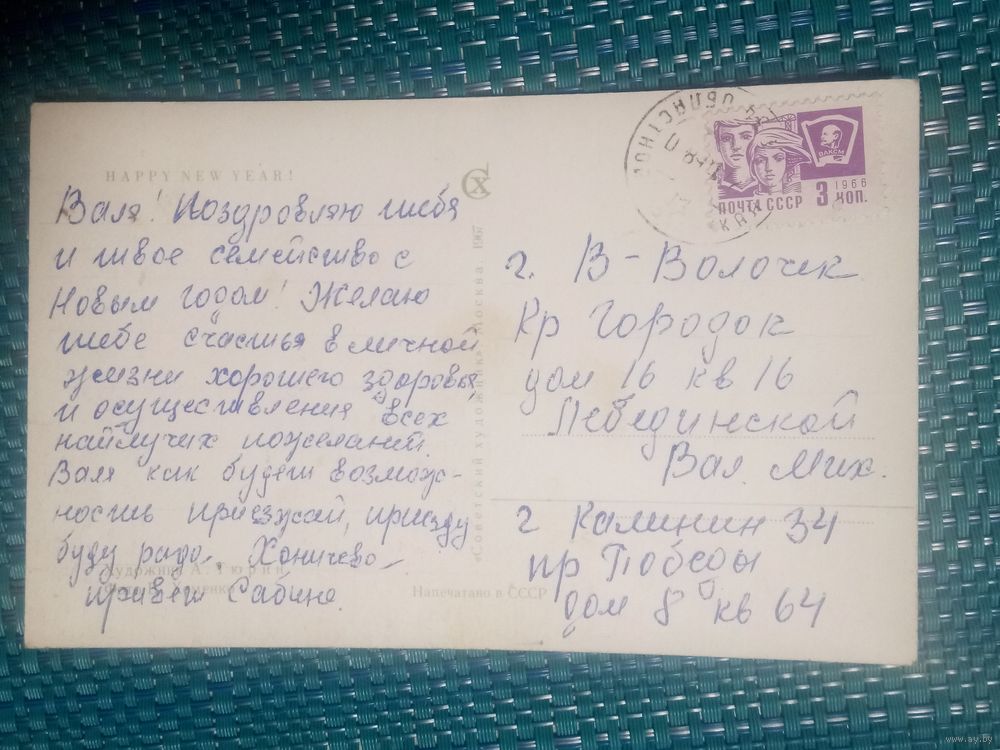 HAPPY NEW YEAR!
Валя! Поздровляю тебя
и твое семейство с
Новым годом! Желаю
тебе счастья в личной
жизни хорошего здоровья,
и осуществления всех
найлучих пожеланий.
Валя как будет возмож-
ность приезжай, приезду
буду рада.
привет Сабине.
Художник А.
Напечатано в СССР
«Советский художник» Москва. 1967
ПОЧТА СССР 3 КОП.
1966
ВЛКСМ
г. В-Волочек
Кр Городок
дом 16 кв 16
Лебединской
Вал. Мих.
г Калинин 34
пр Победы
дом 8 кв 64
www.ay.by